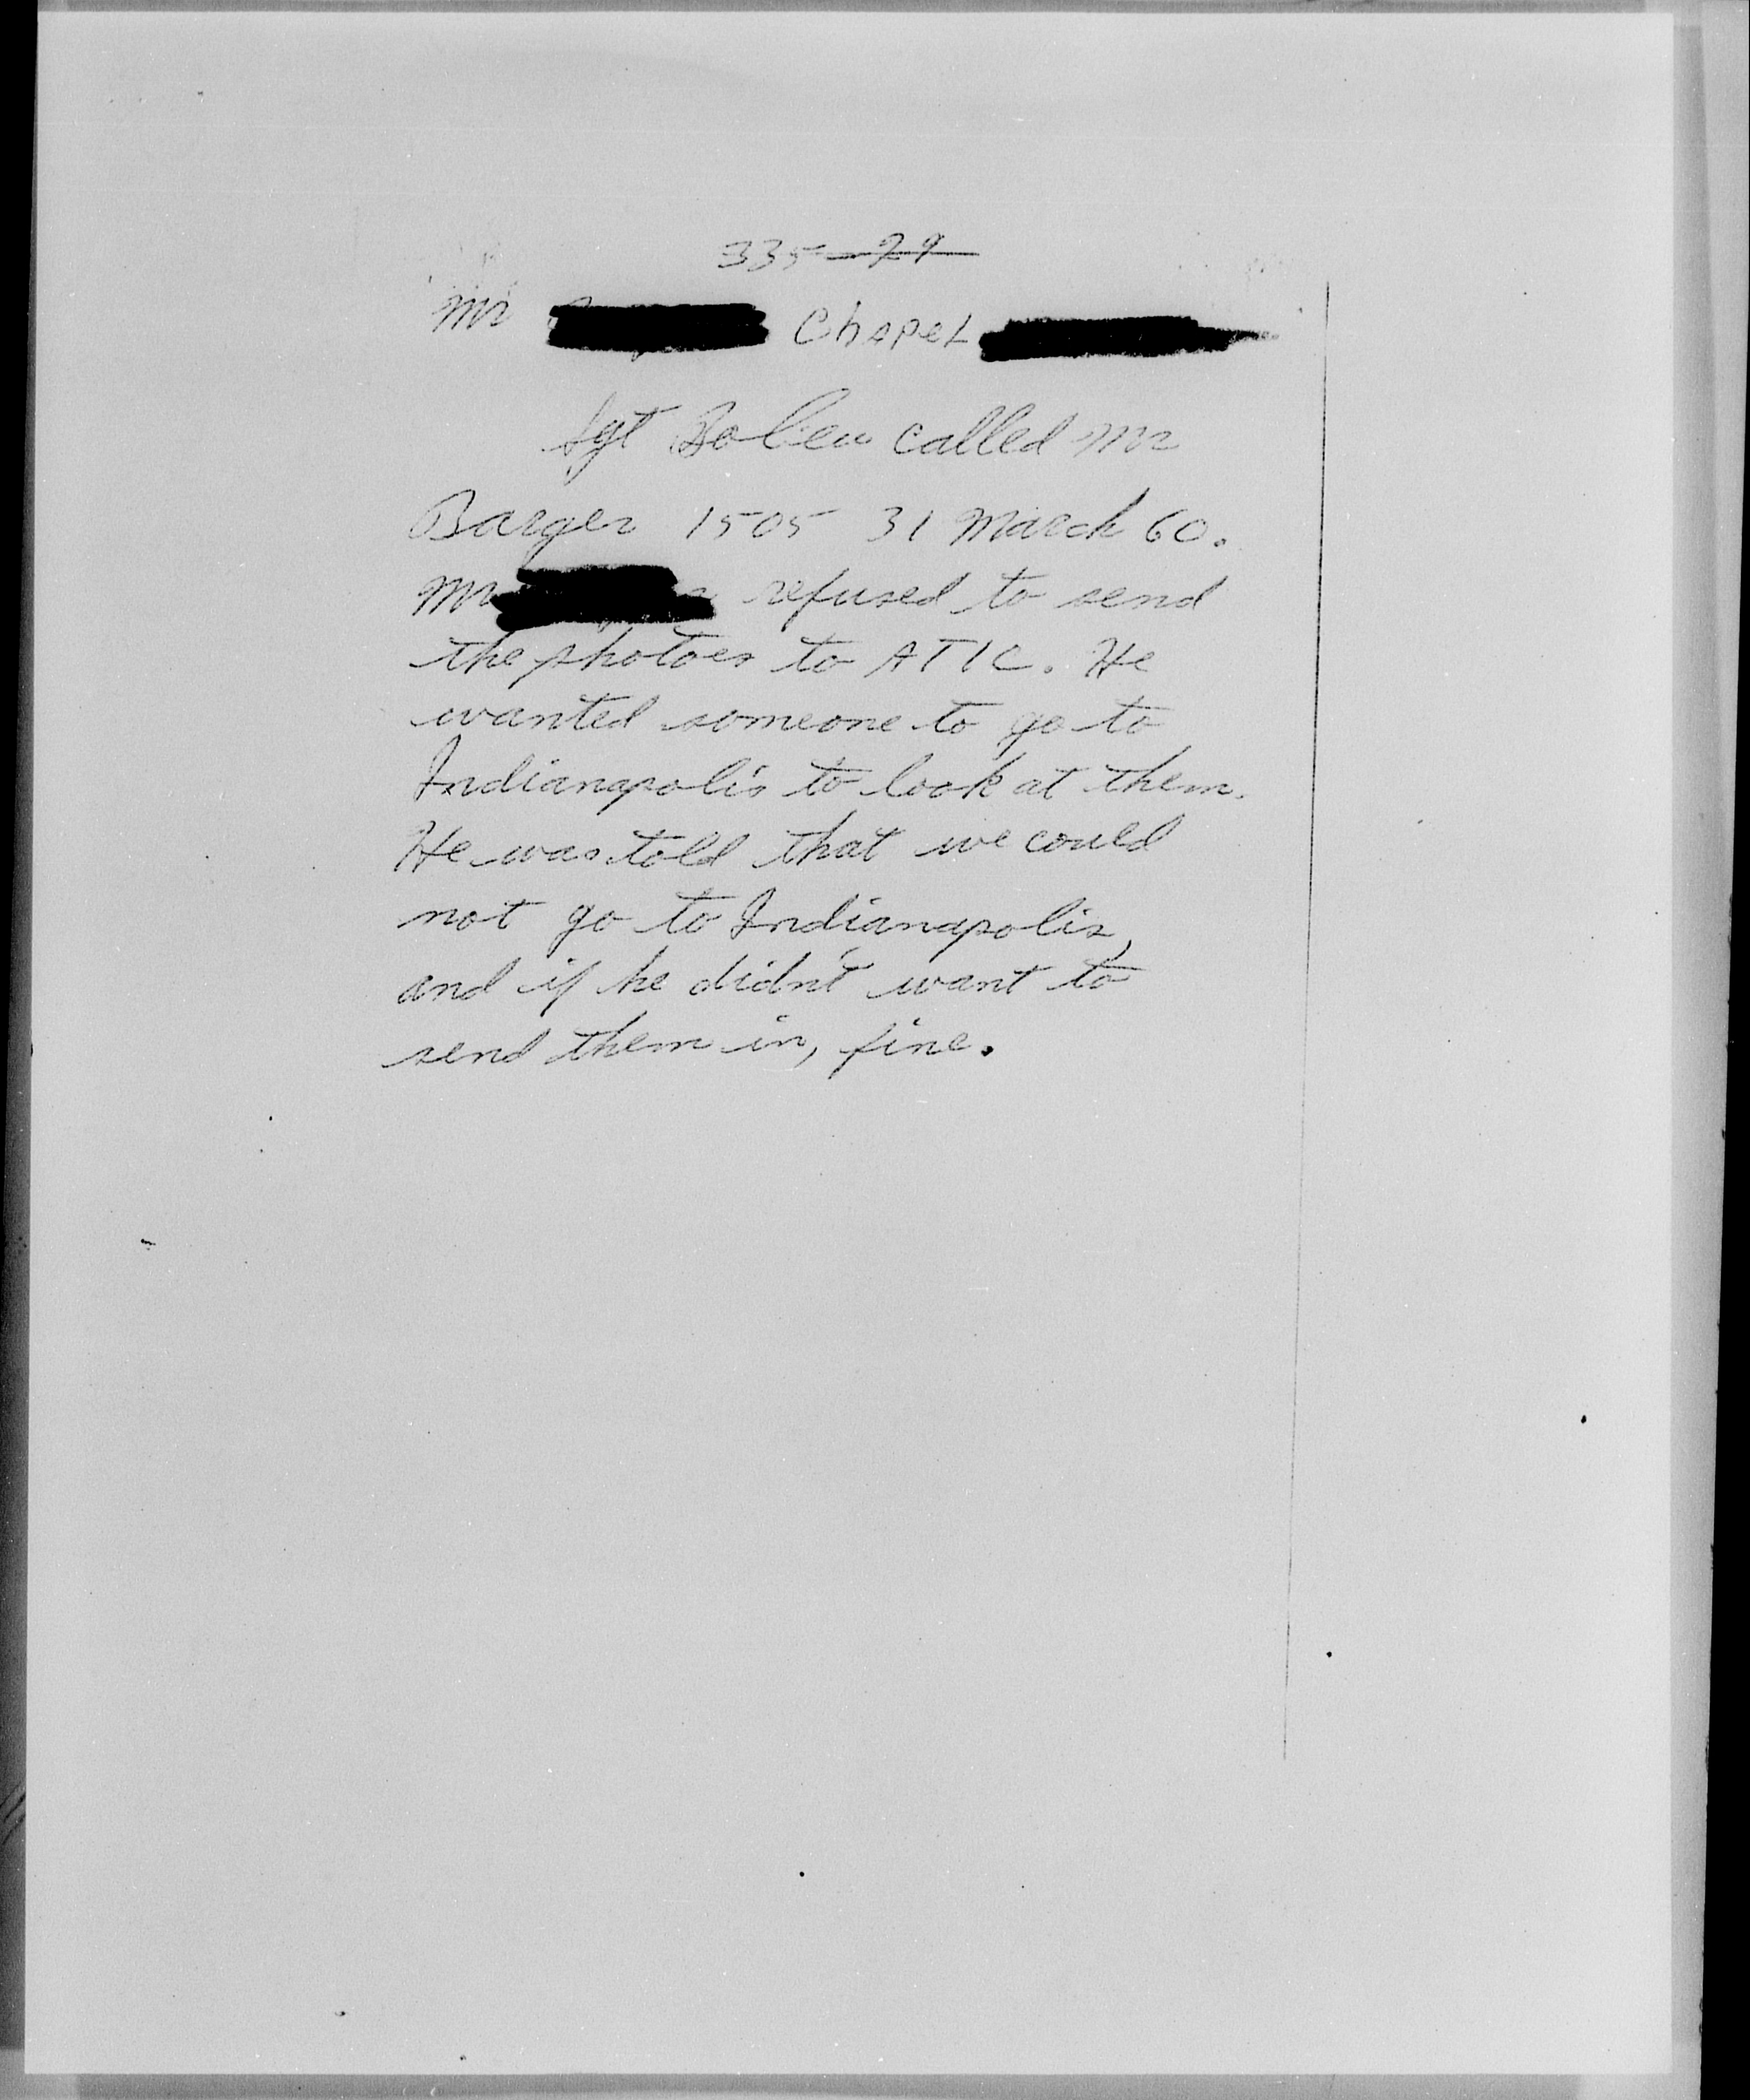 335 29
Mr Chapel
Sgt called Mr
Barger 1505 31 March 60.
Mr refused to send
the photoes to ATIC. He
wanted someone to go to
Indianapolis to look at them.
He was told that we could
not go to Indianapolis,
and if he didn't want to
send them in, fine.